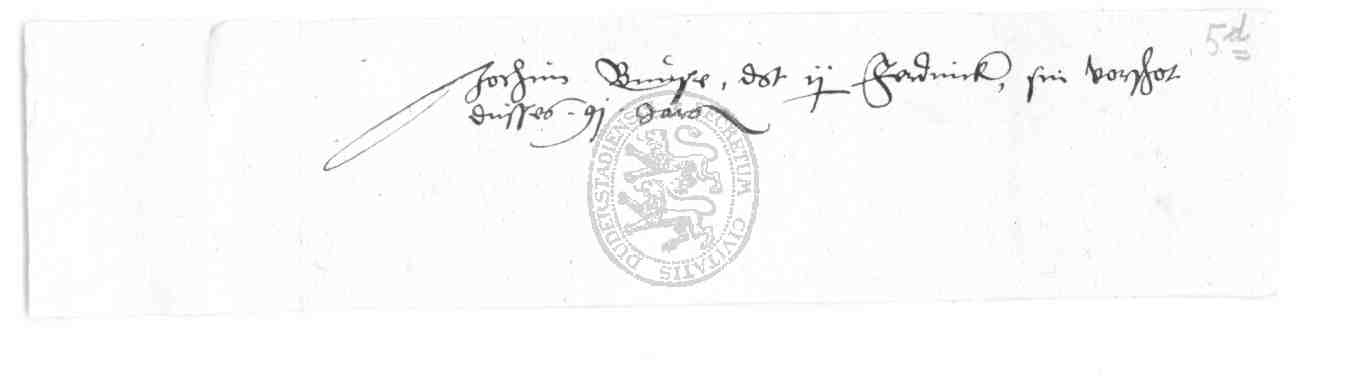 5d
Jochim Bruse, dst ij Ferdinck, sin vorschot
dusses 91 Jars
SECRETUM CIVITATIS DUDERSTADIENS